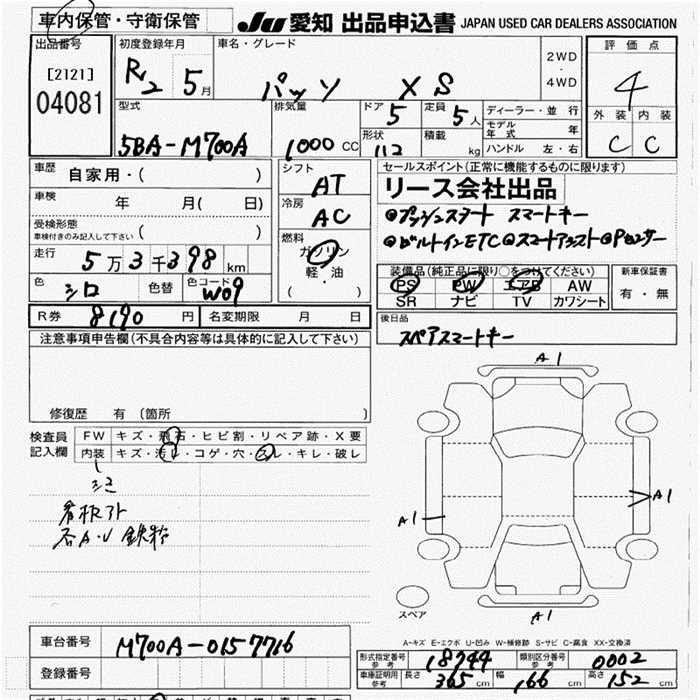 車内保管・守衛保管 JU 愛知 出品申込書 JAPAN USED CAR DEALERS ASSOCIATION
出品番号 初度登録年月 車名・グレード 評価点
[2121] R2 5月 パッソ XS 2WD・4WD 4
04081
型式 排気量 ドア 5 定員 5人 ディーラー・並行 外装 内装
5BA-M700A 1000 CC 形状 112 積載 kg モデル年式 年 C C
ハンドル 左・右
車歴 自家用・( ) シフト AT セールスポイント(正常に機能するものに限ります)
リース会社出品
車検 年 月( 日) 冷房 AC ◎プッシュスタート スマートキー
受検形態 車検付きのみ記入して下さい ( ) ◎ビルトインETC◎スマートアシスト◎Pセンサー
走行 5万3千398km 燃料 ガソリン 軽・油 ( )
装備品(純正品に限り○をつけてください) 新車保証書
PS PW エアB AW 有・無
SR ナビ TV カワシート
色 シロ 色替 色コード W09
R券 8190円 名変期限 月 日 後日品
スペアスマートキー
注意事項申告欄(不具合内容等は具体的に記入して下さい)
修復歴 有(箇所 )
検査員記入欄 FW キズ・飛石・ヒビ割・リペア跡・X要
内装 キズ・汚レ・コゲ・穴・スレ・キレ・破レ
シミ
看板アト
A1
A1
A1
A1
スペア
A-キズ E-エクボ U-凹み W-補修跡 S-サビ C-腐食 XX-交換済
車台番号 M700A-0157716
登録番号
形式指定番号 参考 18744 類別区分番号 参考 0002
車庫証明用 参考 長さ 365cm 幅 166cm 高さ 152cm